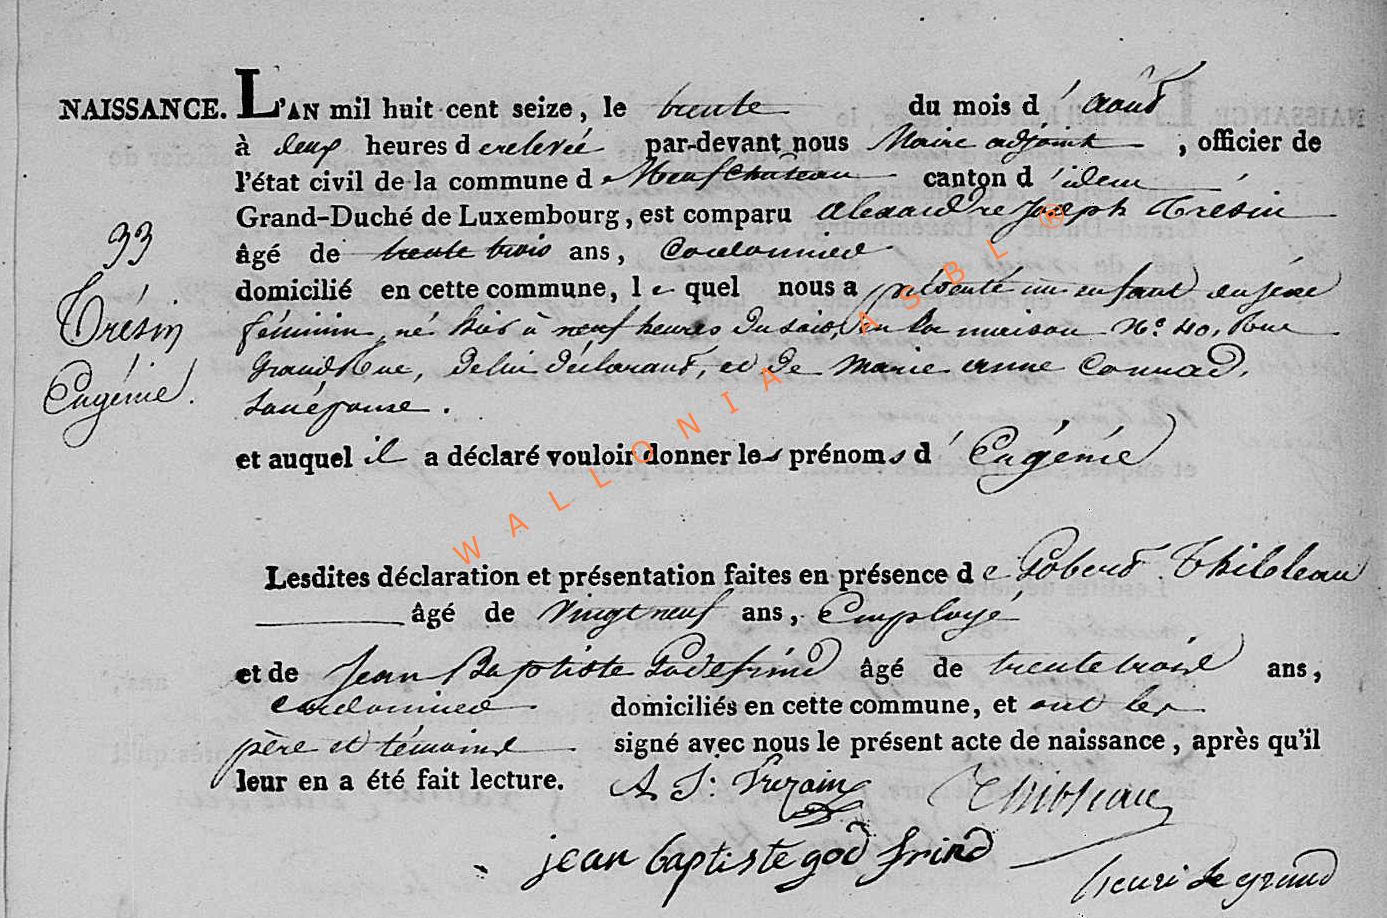 NAISSANCE. L'AN mil huit cent seize, le trente du mois d'août
à deux heures de relevée par-devant nous Maire adjoint, officier de
l'état civil de la commune de Neufchâteau canton d'idem
Grand-Duché de Luxembourg, est comparu Alexandre Joseph Trésin
âgé de trente trois ans, Cordonnier
domicilié en cette commune, le quel nous a présenté un enfant du sexe
féminin, né hier à neuf heures du soir, en la maison N.º 40, Rue
Grand Rue, de lui déclarant, et de Marie anne Connad,
son épouse.
et auquel il a déclaré vouloir donner les prénoms d'Eugénie
33
Trésin
Eugénie.
Lesdites déclaration et présentation faites en présence de Gobert Thibleau
âgé de vingt neuf ans, Employé
et de Jean Baptiste Godefrind âgé de trente trois ans,
cordonnier domiciliés en cette commune, et ont les
père et témoins signé avec nous le présent acte de naissance, après qu'il
leur en a été fait lecture. A J: Trezain Thibleau
jean baptiste god frind
henri le grand
WALLONIA ASBL ®